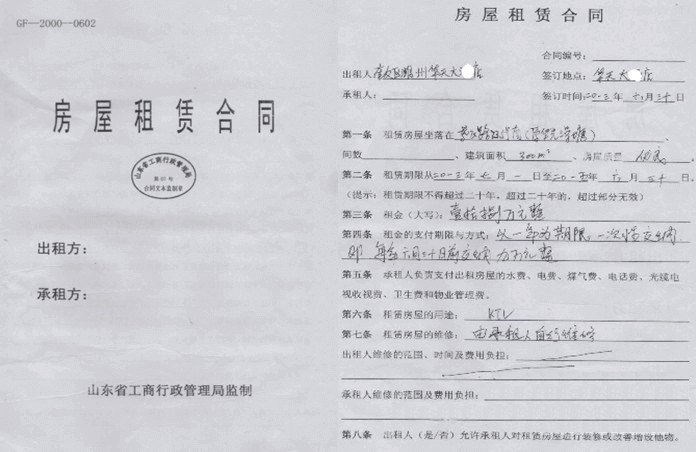 GF—2000—0602
房屋租赁合同
山东省工商行政管理局
合同文本监制章
出租方：
承租方：
山东省工商行政管理局监制
房屋租赁合同
合同编号：
出租人：
签订地点：
承租人：
签订时间：二〇一三年 六月三十日
第一条 租赁房屋坐落在
间数 、建筑面积 300m² 、房屋质量
第二条 租赁期限从二〇一三年 七月 一日至二〇一五年 六月 三十日。
（提示：租赁期限不得超过二十年，超过二十年的，超过部分无效）
第三条 租金（大写）：壹拾捌万元整
第四条 租金的支付期限与方式：以一年为期限，一次性交纳
即 每年六月二十日前交纳 万元整
第五条 承租人负责支付出租房屋的水费、电费、煤气费、电话费、光缆电
视收视费、卫生费和物业管理费。
第六条 租赁房屋的用途：KTV
第七条 租赁房屋的维修：由承租人自行维修
出租人维修的范围、时间及费用负担：
承租人维修的范围及费用负担：
第八条 出租人（是/否）允许承租人对租赁房屋进行装修或改善增设他物。